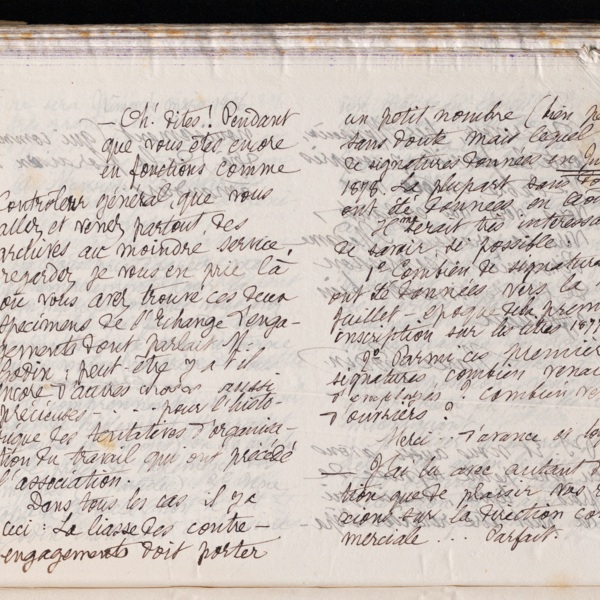 — Oh! dites! Pendant
que vous êtes encore
en fonctions comme
Contrôleur général, que vous
allez et venez partout, des
archives au moindre service,
regardez je vous en prie là
où vous avez trouvé ces deux
specimens de l'Echange d'enga-
gements dont parlait M.
Godin; peut-être y a t il
encore d'autres choses aussi
précieuses - . . . - pour l'histo-
rique des tentatives d'organisa-
tion du travail qui ont précédé
l'association.
Dans tous les cas il y a
ceci: La liasse des contre-
engagements doit porter
un petit nombre (bien
sans doute mais lequel
de signatures données en
1878. La plupart sans
ont été données en
Il me serait très
de savoir, si possible:
1º Combien de
ont été données vers la
juillet - époque de la
inscription sur les
2º Parmi ces
signatures, combien
d'employés? combien
d'ouvriers?
Merci d'avance
— J'ai lu avec autant
tion que de plaisir vos
xions sur la direction
merciale . . . Parfait.